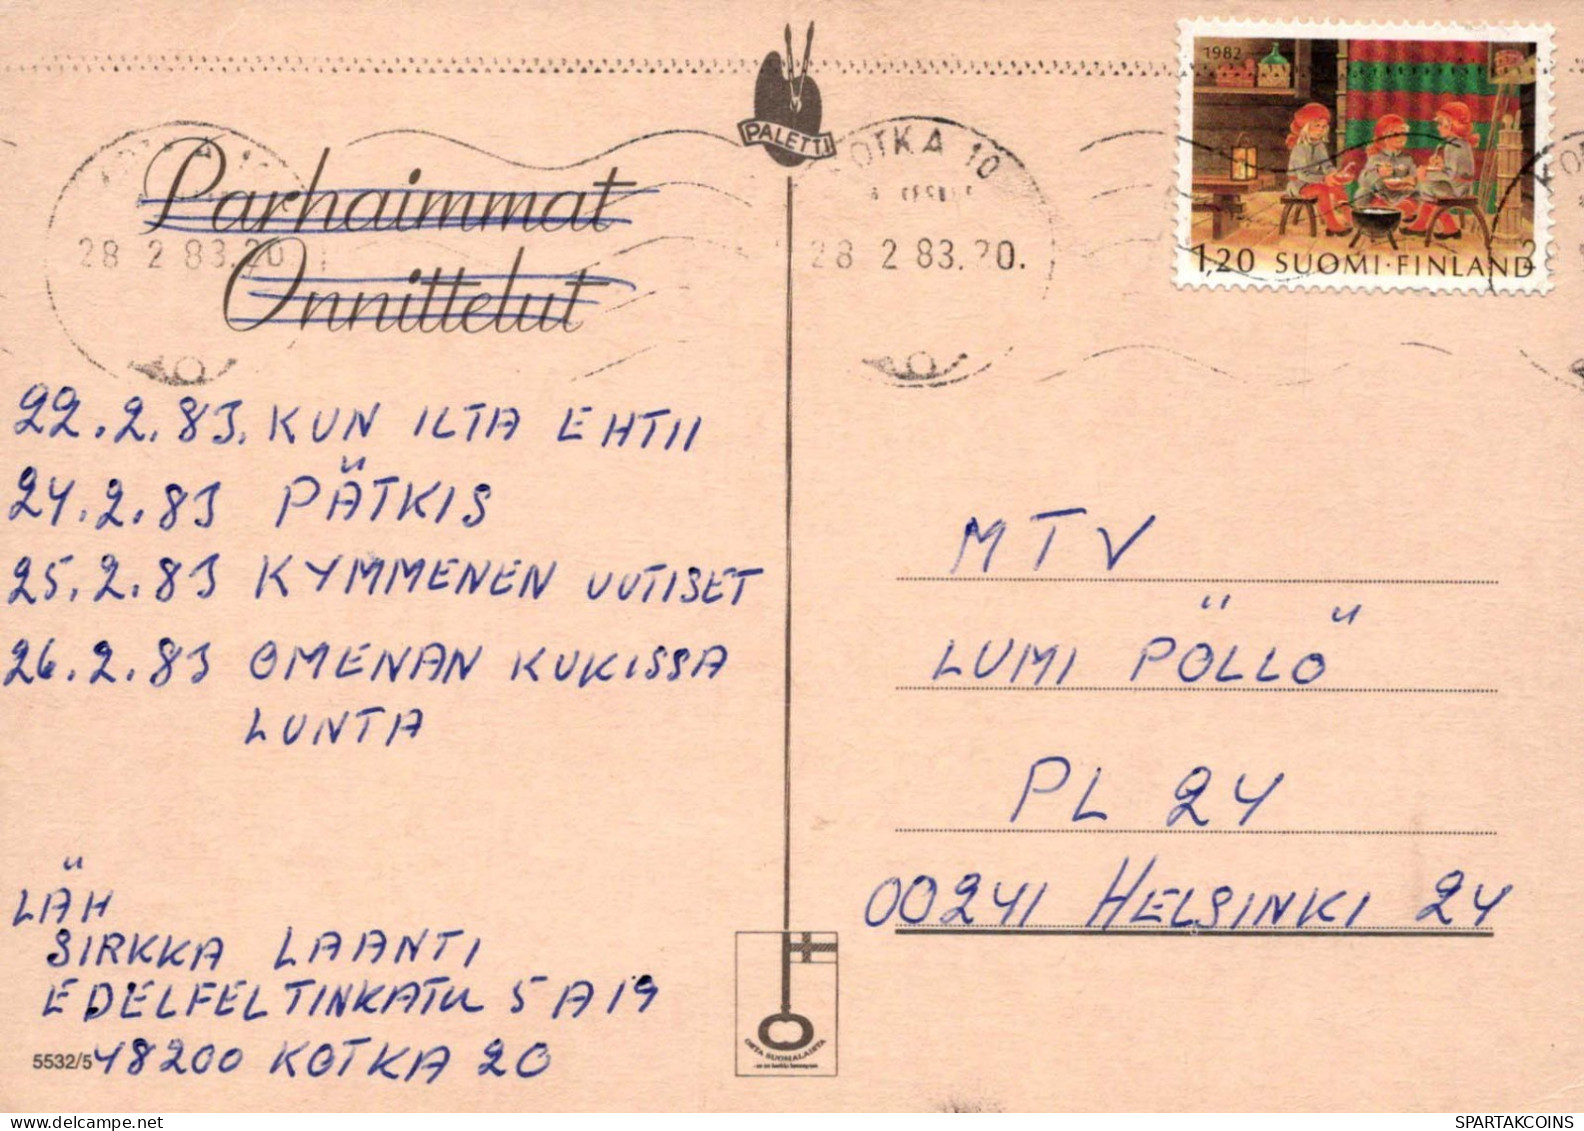 PALETTI
1982
1,20 SUOMI·FINLAND
KOTKA 10
28 2 83.20
OTKA 10
28 2 83.20.
Parhaimmat
Onnittelut
22.2.83. KUN ILTA EHTII
24.2.83 PÄTKIS
25.2.83 KYMMENEN UUTISET
26.2.83 OMENAN KUKISSA
LUNTA
LÄH
SIRKKA LAANTI
EDELFELTINKATU 5 A 19
5532/5
48200 KOTKA 20
MTV
LUMI PÖLLÖ
PL 24
00241 HELSINKI 24
OSTA SUOMALAISTA
SPARTAKCOINS